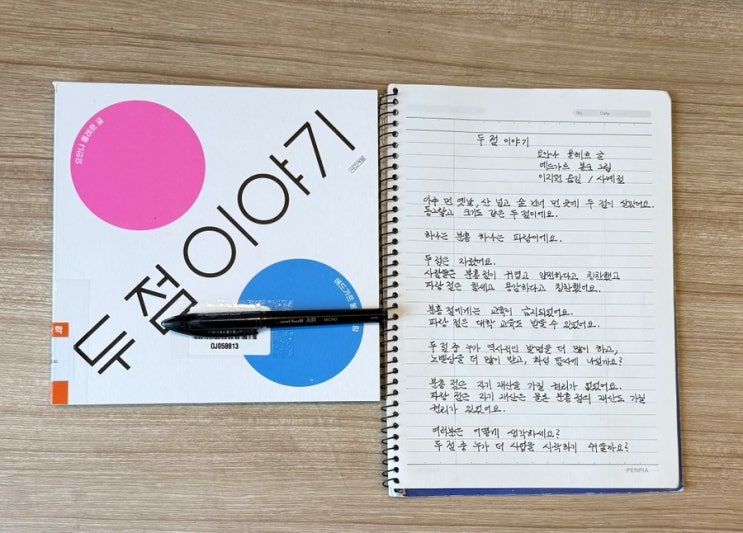 두 점 이야기
요안나 올레흐 글
사계절
학
OJ058813
uni-ball AIR MICRO
No.
Date
두 점 이야기
요안나 올레흐 글
에드가르 봉크 그림
이지원 옮김 / 사계절
아주 먼 옛날, 산 넘고 숲 건너 먼 곳에 두 점이 살았어요.
동그랗고 크기도 같은 두 점이에요.
하나는 분홍 하나는 파랑이에요.
두 점은 자랐어요.
사람들은 분홍 점이 귀엽고 얌전하다고 칭찬했고
파랑 점은 힘세고 용감하다고 칭찬했어요.
분홍 점에게는 교육이 금지되었어요.
파랑 점은 대학 교육도 받을 수 있었어요.
두 점 중 누가 역사적인 발명을 더 많이 하고,
노벨상을 더 많이 받고, 화성 탐사에 나섰을까요?
분홍 점은 자기 재산을 가질 권리가 없었어요.
파랑 점은 자기 재산은 물론 분홍 점의 재산도 가질
권리가 있었어요.
여러분은 어떻게 생각하세요?
두 점 중 누가 더 사업을 시작하기 쉬울까요?
PENPIA